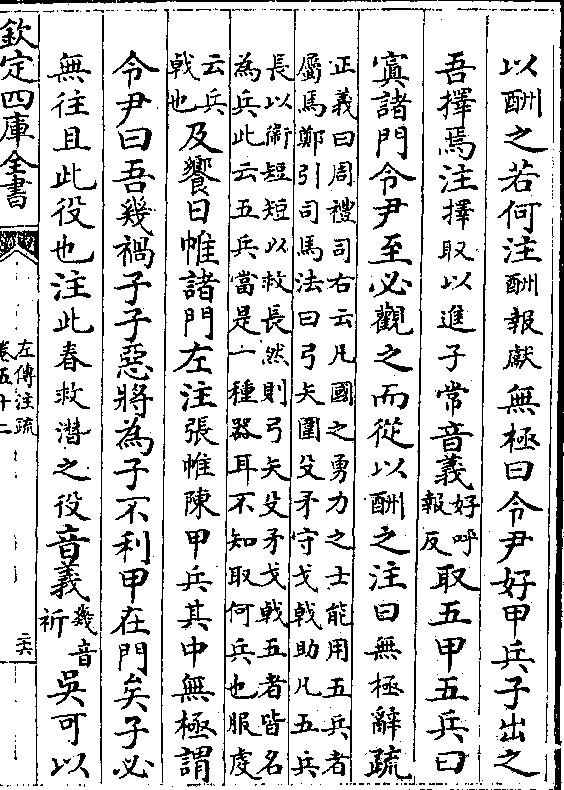 以酬之若何注酬報獻無極曰令尹好甲兵子出之
吾擇焉注擇取以進子常音義好呼報反取五甲五兵曰
寘諸門令尹至必觀之而從以酬之注曰無極辭疏
正義曰周禮司右云凡國之勇力之士能用五兵者
屬焉鄭引司馬法曰弓矢圍殳矛守戈戟助凡五兵
長以衛短短以救長然則弓矢殳矛戈戟五者皆名
為兵此云五兵當是一種器耳不知取何兵也服虔
云兵戟也及饗日帷諸門左注張帷陳甲兵其中無極謂
令尹曰吾幾禍子子惡將為子不利甲在門矣子必
無往且此役也注此春救潛之役音義幾音祈吳可以
欽定四庫全書
左傳注疏
卷五十二
二六